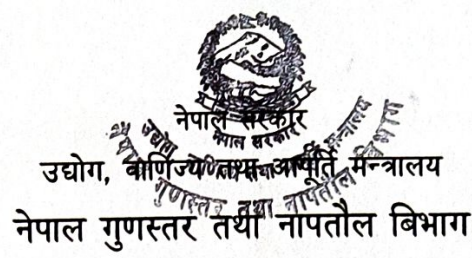 नेपाल सरकार
नेपाल सरकार
उद्योग, वाणिज्य तथा आपूर्ति मन्त्रालय
नेपाल गुणस्तर तथा नापतौल बिभाग
उद्योग, वाणिज्य तथा आपूर्ति मन्त्रालय
नेपाल गुणस्तर तथा नापतौल विभाग